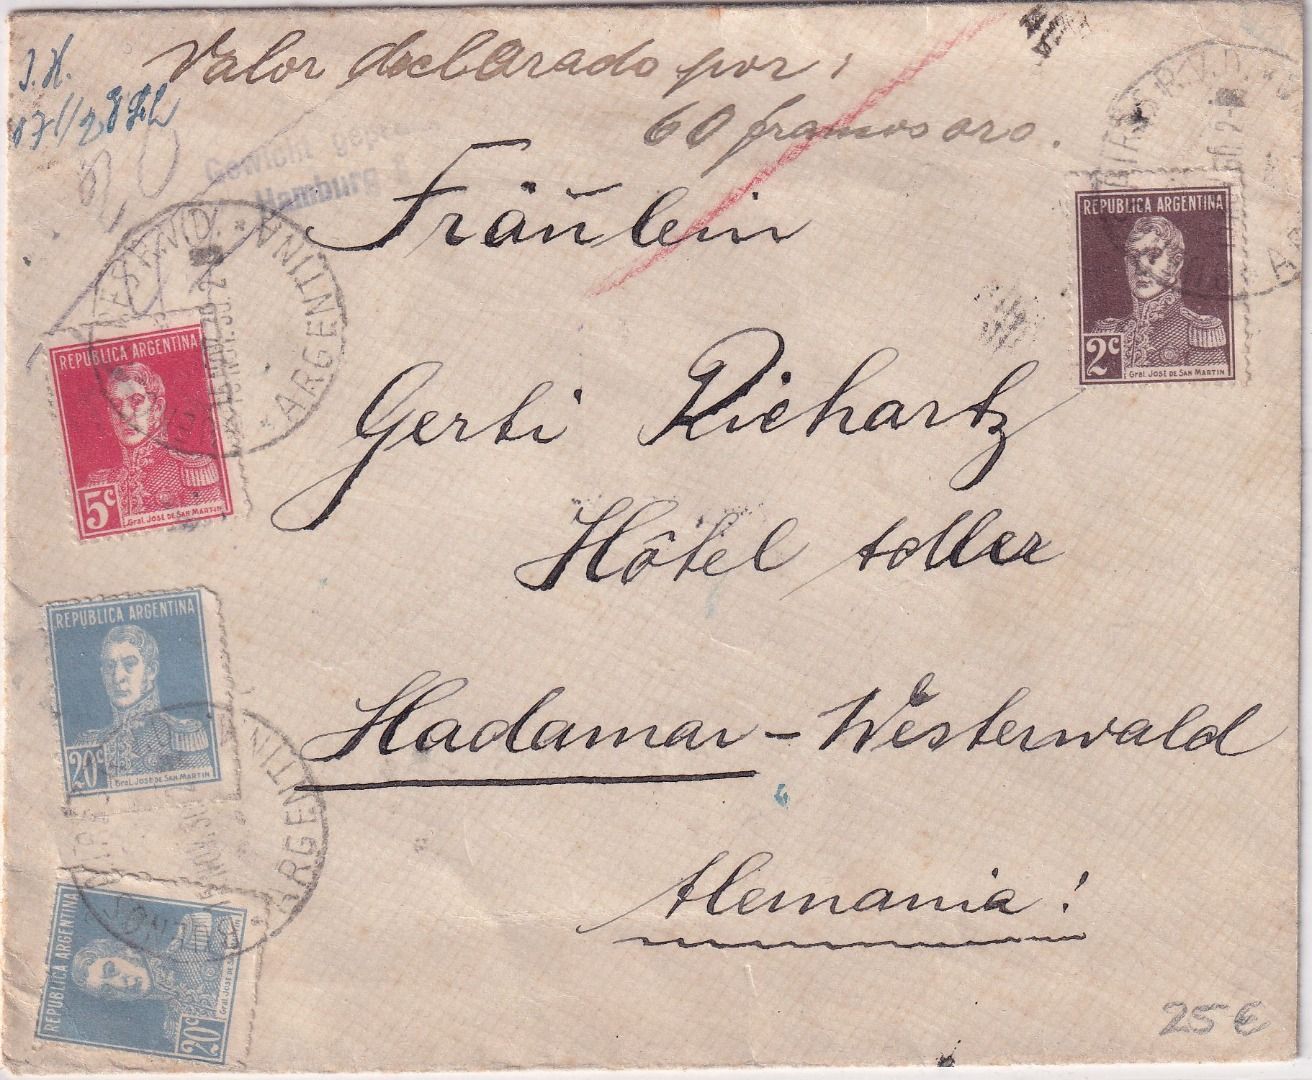 Valor declarado por:
60 francos oro.
J.H.
Gewicht geprüft
Hamburg 1
Fräulein
Gerti Richartz
Hôtel Adler
Hadamar - Westerwald
Alemania!
REPUBLICA ARGENTINA
2c
Gral. José de San Martin
REPUBLICA ARGENTINA
5c
Gral. José de San Martin
REPUBLICA ARGENTINA
20c
Gral. José de San Martin
REPUBLICA ARGENTINA
20c
Gral. José de San
ARGENTINA
ARGENTIN
25 €